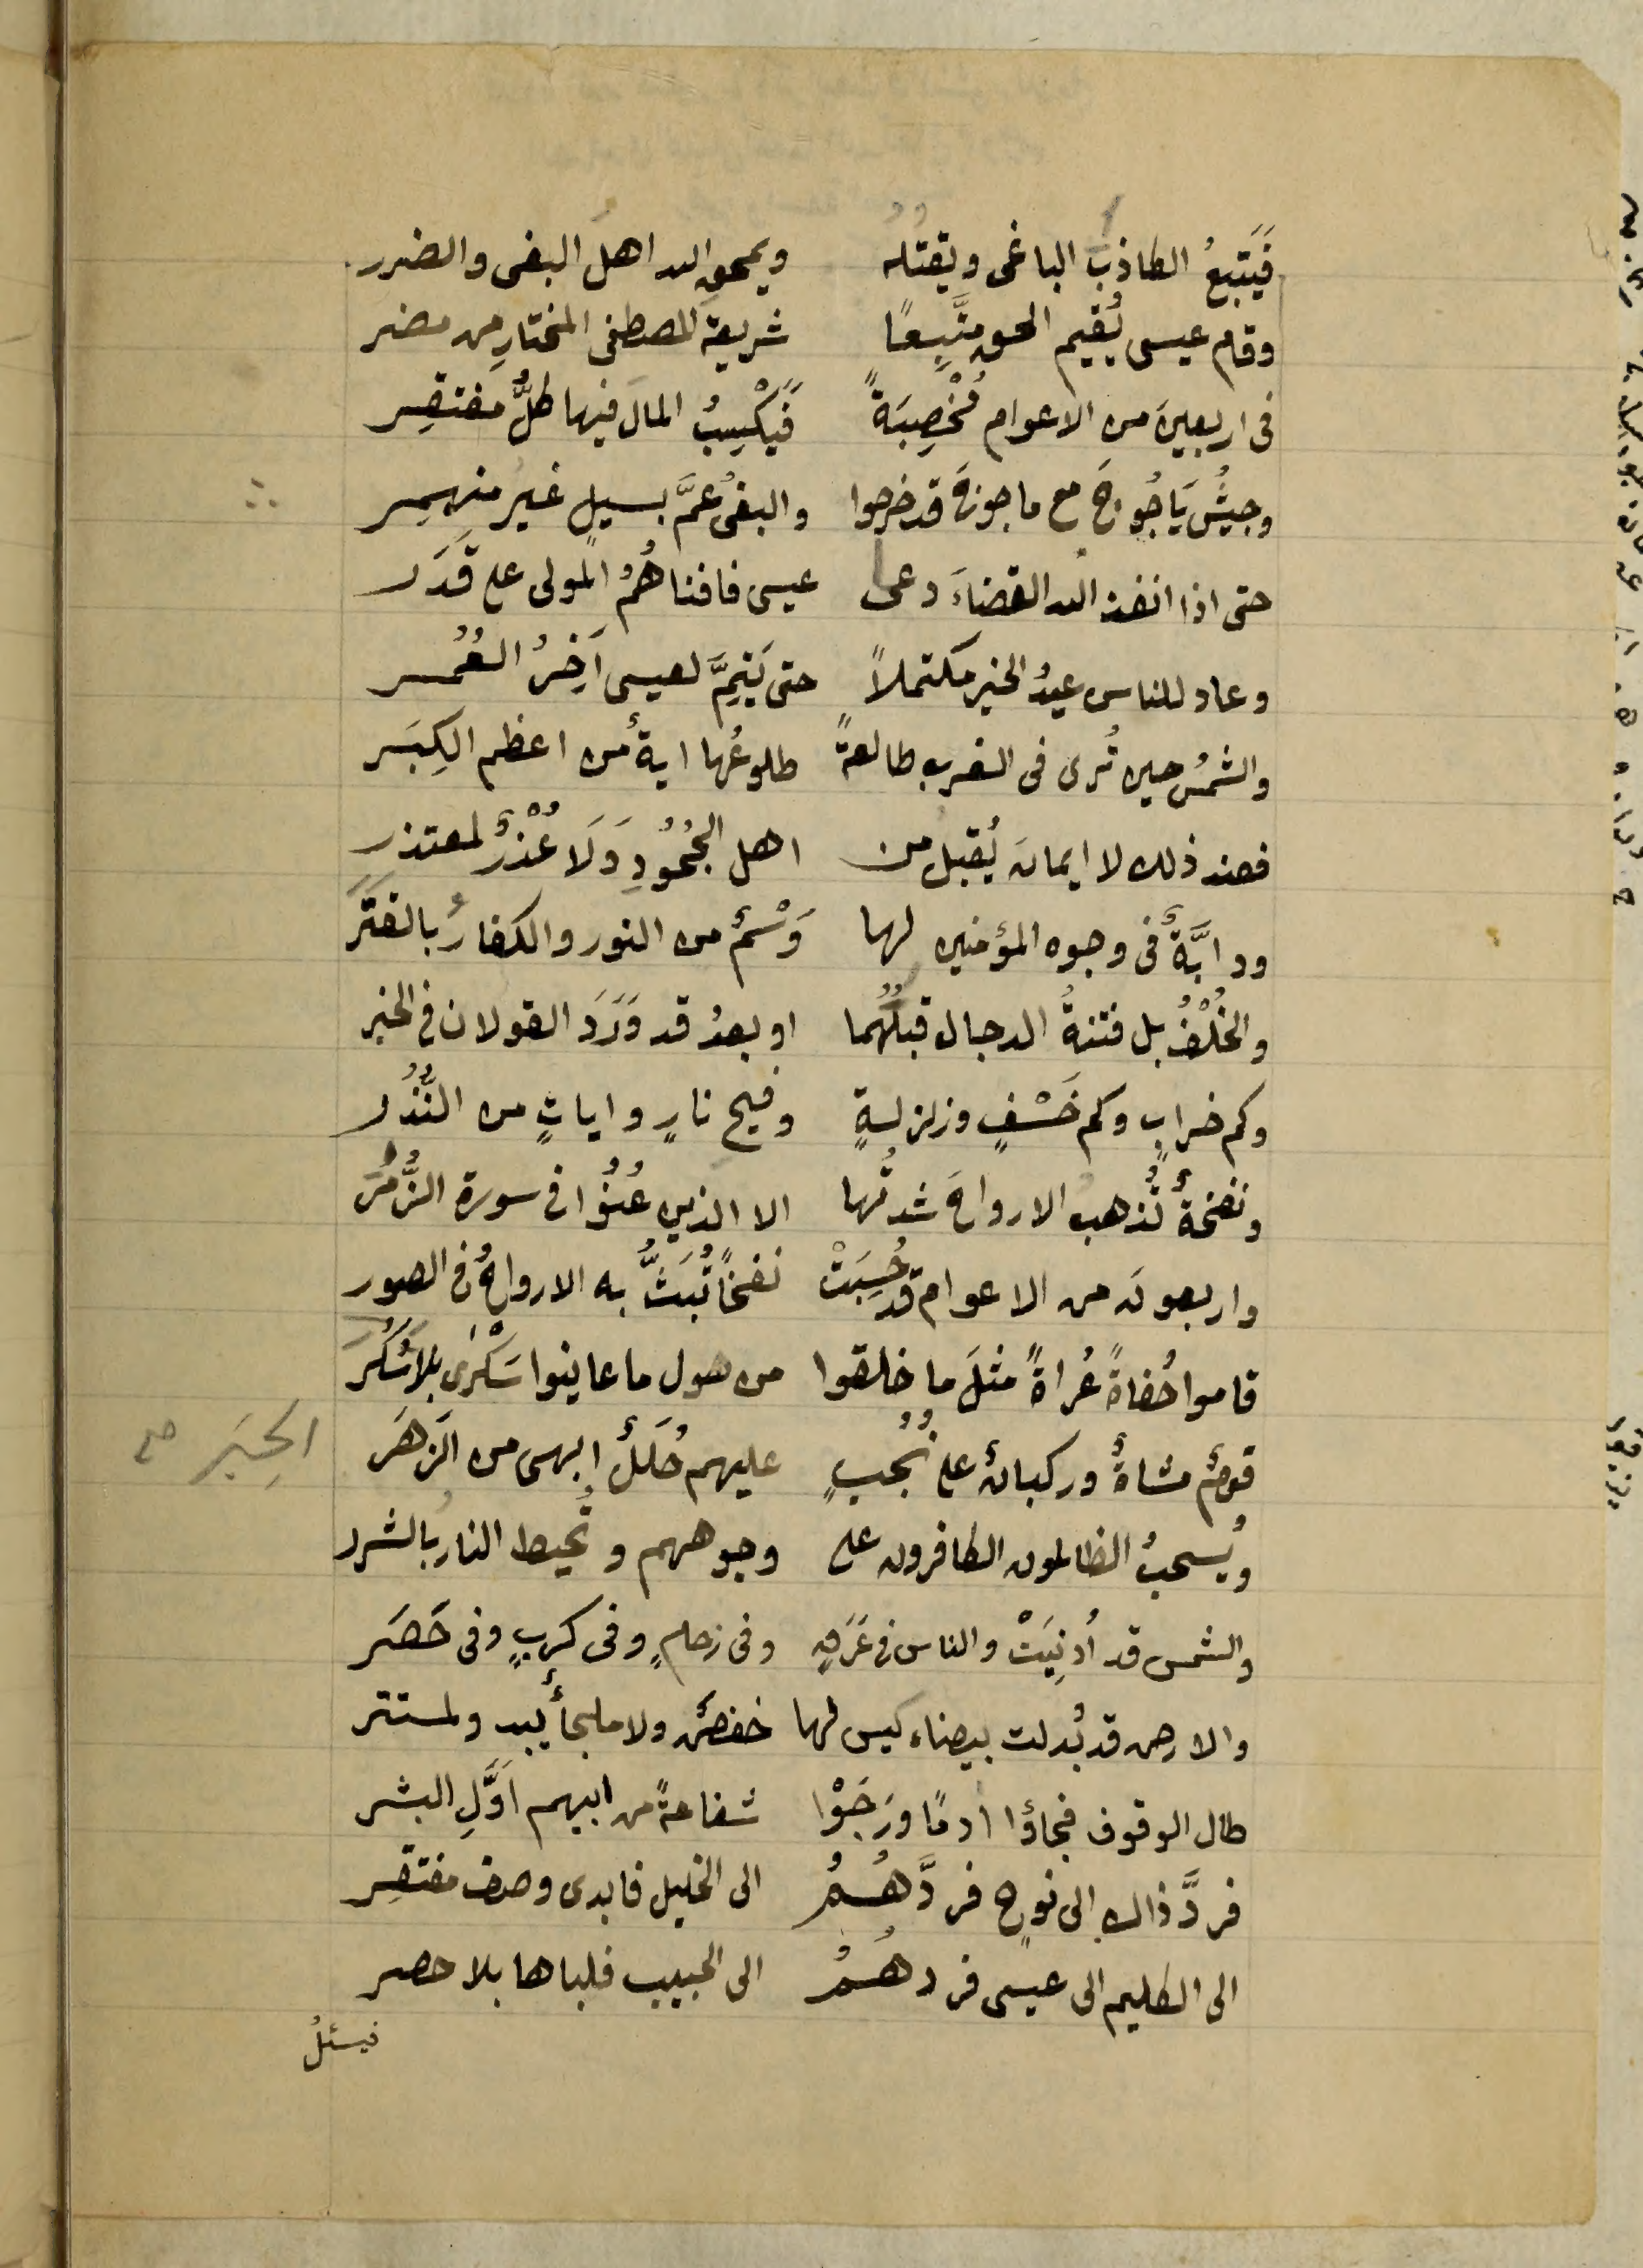 فَيَتبعُ الكاذبَ الباغى ويقتله ويمحق الله اهلَ البغى والضرر
وقام عيسى يُقيم الحق متَّبِعًا شريعة المصطفى المختارِ من مضر
فى اربعينَ من الاعوام مُخْصِبَةً فَيَكْسِبُ المالَ فيها كلُّ مفتقِر
وجيشُ يَاجُوجَ مع ماجوجَ قد خرجوا والبغىُ عمَّ بسيلٍ غيرِ منهمِر
حتى اذا انفذ الله القضاءَ دعى عيسى فافناهُمُ المولى على قَدَر
وعاد للناس عيدُ الخير مكتملاً حتى يَتِمَّ لعيسى آخِرُ العُمُر
والشمسُ حين تُرى فى الغرب طالعةً طلوعُها ايةٌ من اعظم الكِبَر
فعند ذلك لا ايمانَ يُقبل من اهل الجُحُودِ وَلَا عُذْرٌ لمعتذر
ودابَّةٌ فى وجوه المؤمنين لها وَسْمٌ من النور والكفارُ بالقتَرَ
والخُلْفُ بل فتنةُ الدجال قبلَهُما او بعدُ قد وَرَدَ القولان فى الخبر
وكم خرابٍ وكم خَسْفٍ وزلزلةٍ وفيح نارٍ واياتٍ من النُّذُر
ونفخةٌ تُذهب الارواحَ شدتُها الا الذين عُنُوا فى سورة الزُّمَر
واربعون من الاعوام قد حُسِبَتْ نفخًا تُبَثُّ به الارواحُ فى الصور
قاموا حُفاةً عُراةً مثلَ ما خلقوا من هول ما عاينوا سَكْرَى بلا سُكُرَ
قومٌ مشاةٌ وركبانٌ على نُجُبٍ عليهم حُلَلٌ ابهى من الزَهَرَ
الحِبَر صح
ويُسحبُ الظالمون الكافرون على وجوههم وتُحيط النارُ بالشرر
والشمس قد اُدنِيَتْ والناس فى عَرَقٍ وفى زحامٍ وفى كربٍ وفى حَصَر
والارض قد بُدلت بيضاء ليس لها خفضٌ ولا ملجأٌ يبدو لمستتر
طال الوقوف فجاؤا ادمًا ورَجَوْا شفاعةً من ابيهم اَوَّلِ البشر
فردَّ ذاك الى نوحٍ فردَّهُمُ الى الخليل فابدى وصف مفتقِر
الى الكليم الى عيسى فردهُمُ الى الحبيب فلباها بلا حصر
فيسئلُ